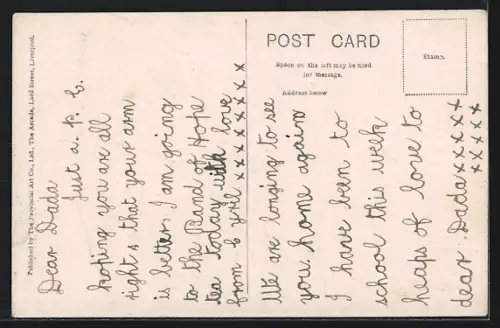 POST CARD
Space on the left may be used
for message.
Address below
Stamp.
Published by The Provincial Art Co., Ltd., The Arcade, Lord Street, Liverpool.
Dear Dada
Just a P. C.
hoping you are all
right & that your arm
is better. I am going
to the Band of Hope
tea today with love
from Cyril x x x x x x x x
We are longing to see
you home again
I have been to
school this week
heaps of love to
dear Dada x x x x x
x x x x x